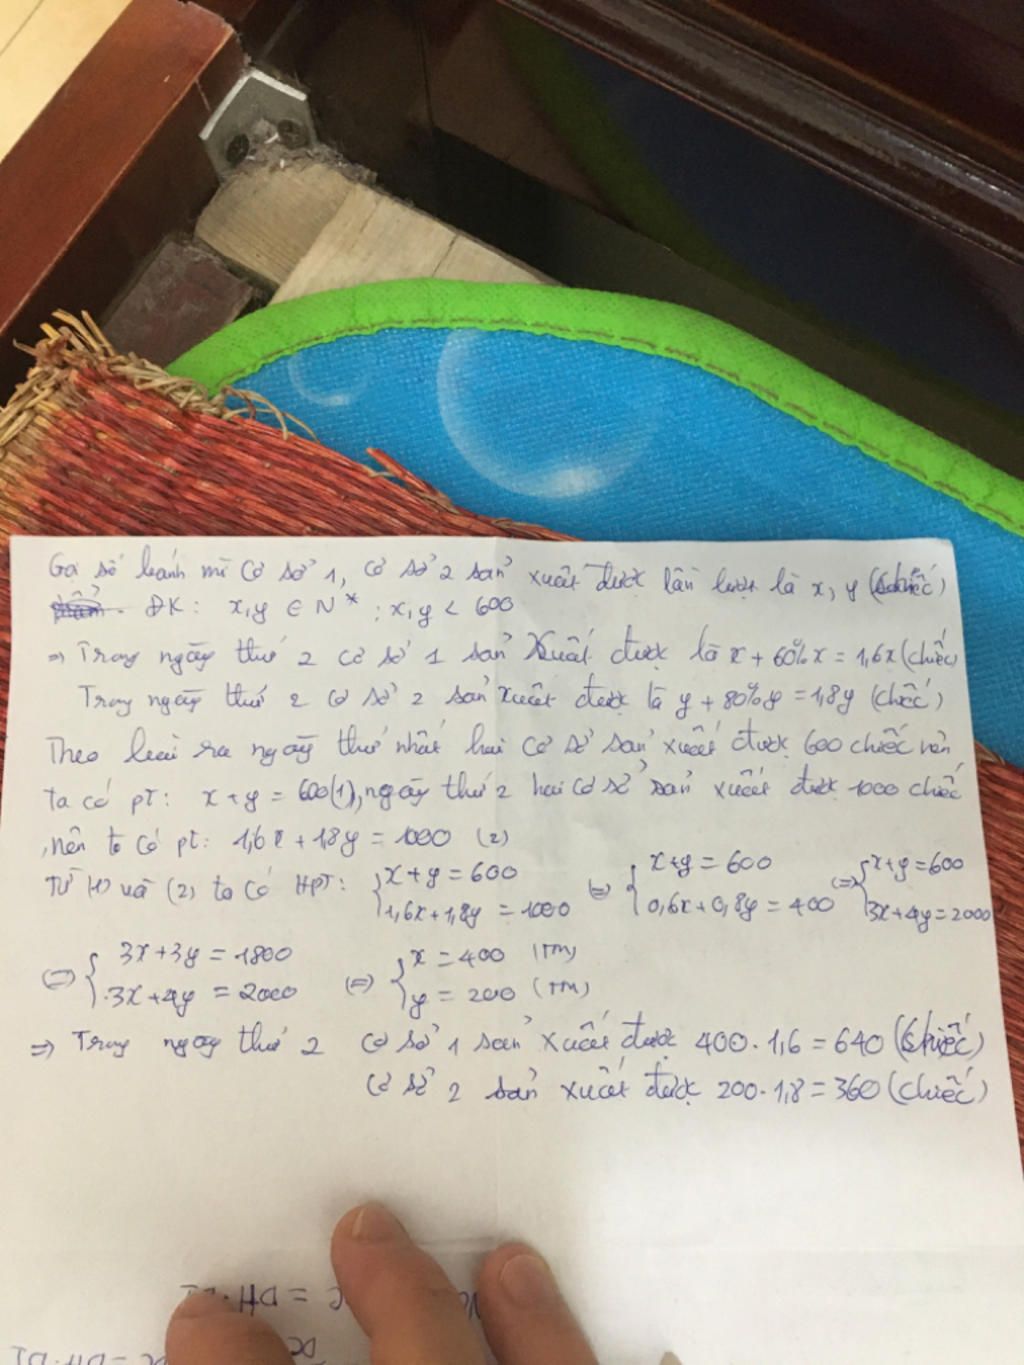 Gọi số bánh mì cơ sở 1, cơ sở 2 sản xuất được lần lượt là x, y (chiếc)
ĐK: x,y ∈ N* ; x,y < 600
⇒ Trong ngày thứ 2 cơ sở 1 sản xuất được là x + 60%x = 1,6x (chiếc)
Trong ngày thứ 2 cơ sở 2 sản xuất được là y + 80%y = 1,8y (chiếc)
Theo bài ra ngày thứ nhất hai cơ sở sản xuất được 600 chiếc nên
ta có pt: x + y = 600 (1), ngày thứ 2 hai cơ sở sản xuất được 1000 chiếc
, nên ta có pt: 1,6x + 1,8y = 1000 (2)
Từ (1) và (2) ta có HPT: { x + y = 600 ; 1,6x + 1,8y = 1000 ⇔ { x + y = 600 ; 0,6x + 0,8y = 400 ⇔ { x + y = 600 ; 3x + 4y = 2000
⇔ { 3x + 3y = 1800 ; 3x + 4y = 2000 ⇔ { x = 400 (TM) ; y = 200 (TM)
⇒ Trong ngày thứ 2 cơ sở 1 sản xuất được 400 . 1,6 = 640 (chiếc)
cơ sở 2 sản xuất được 200 . 1,8 = 360 (chiếc)